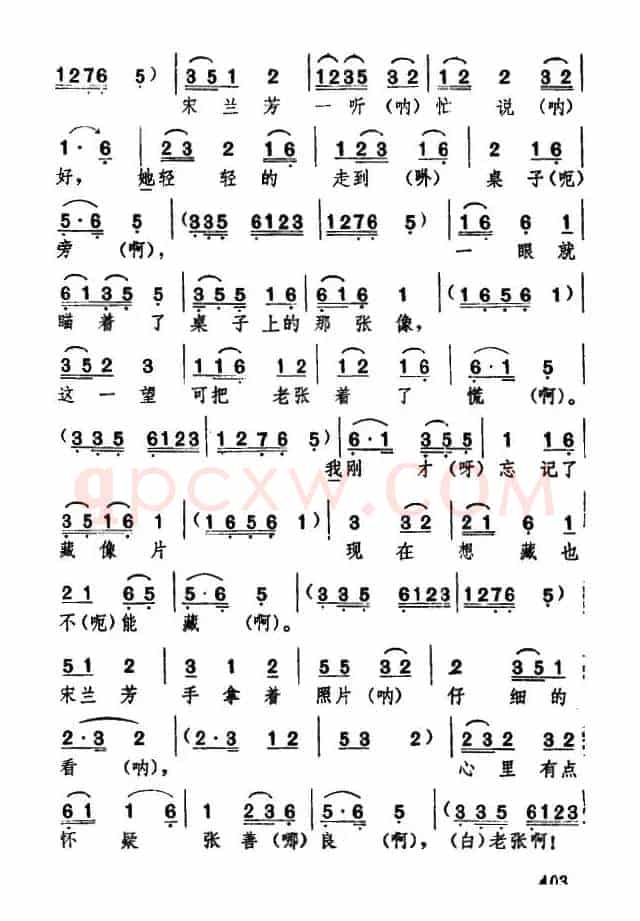 1276 5) | 351 2 | 1235 32 | 12 2 32 |
宋兰芳 一听(呐)忙 说(呐)
1· 6 | 23 2 16 | 2 16 | 2 16 |
好，她轻 轻的 走到 (啉) 桌子(呃)
5·6 5 | (335 6123 | 1276 5) | 16 6 1 |
旁 (啊)， 一 眼就
6135 5 | 535 16 | 616 1 | (1656 1) |
瞄着了 桌子上的那张像，
352 3 | 116 12 | 12 16 | 6·1 5 |
这一望 可把 老张 着 了 慌 (啊)。
(335 6123 | 1276 5) | 6·1 355 | 1 16 |
我刚 才(呀)忘记了
3516 1 | (1656 1) | 3 32 | 21 6 1 |
藏像片 现在 想藏也
21 65 | 5·6 5 | (335 6123 | 1276 5) |
不(呃)能 藏 (啊)。
51 2 | 3 1 2 | 55 32 | 2 351 |
宋兰芳 手拿着 照片(呐) 仔 细的
2·3 2 | (2·3 12 | 53 2) | 232 32 |
看 (呐)， 心里有点
61 1 6 | 1 236 | 5·6 5 | (335 6123 |
怀 疑 张 善(哪)良 (啊)，(白)老张啊！
403
gpcxw.com